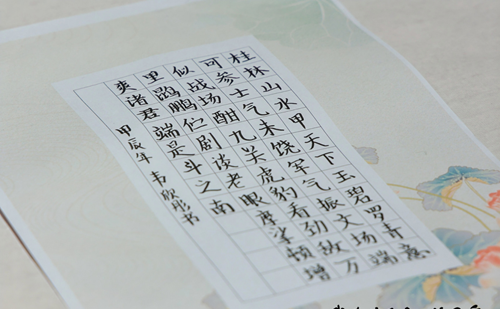 桂林山水甲天下玉碧罗青意
可参士气未饶军气振文场端
似战场酣九关虎豹看劲敌万
里鹍鹏伫剧谈老眼摩挲顿增
爽诸君端是斗之南
甲辰年 韦欣彤书